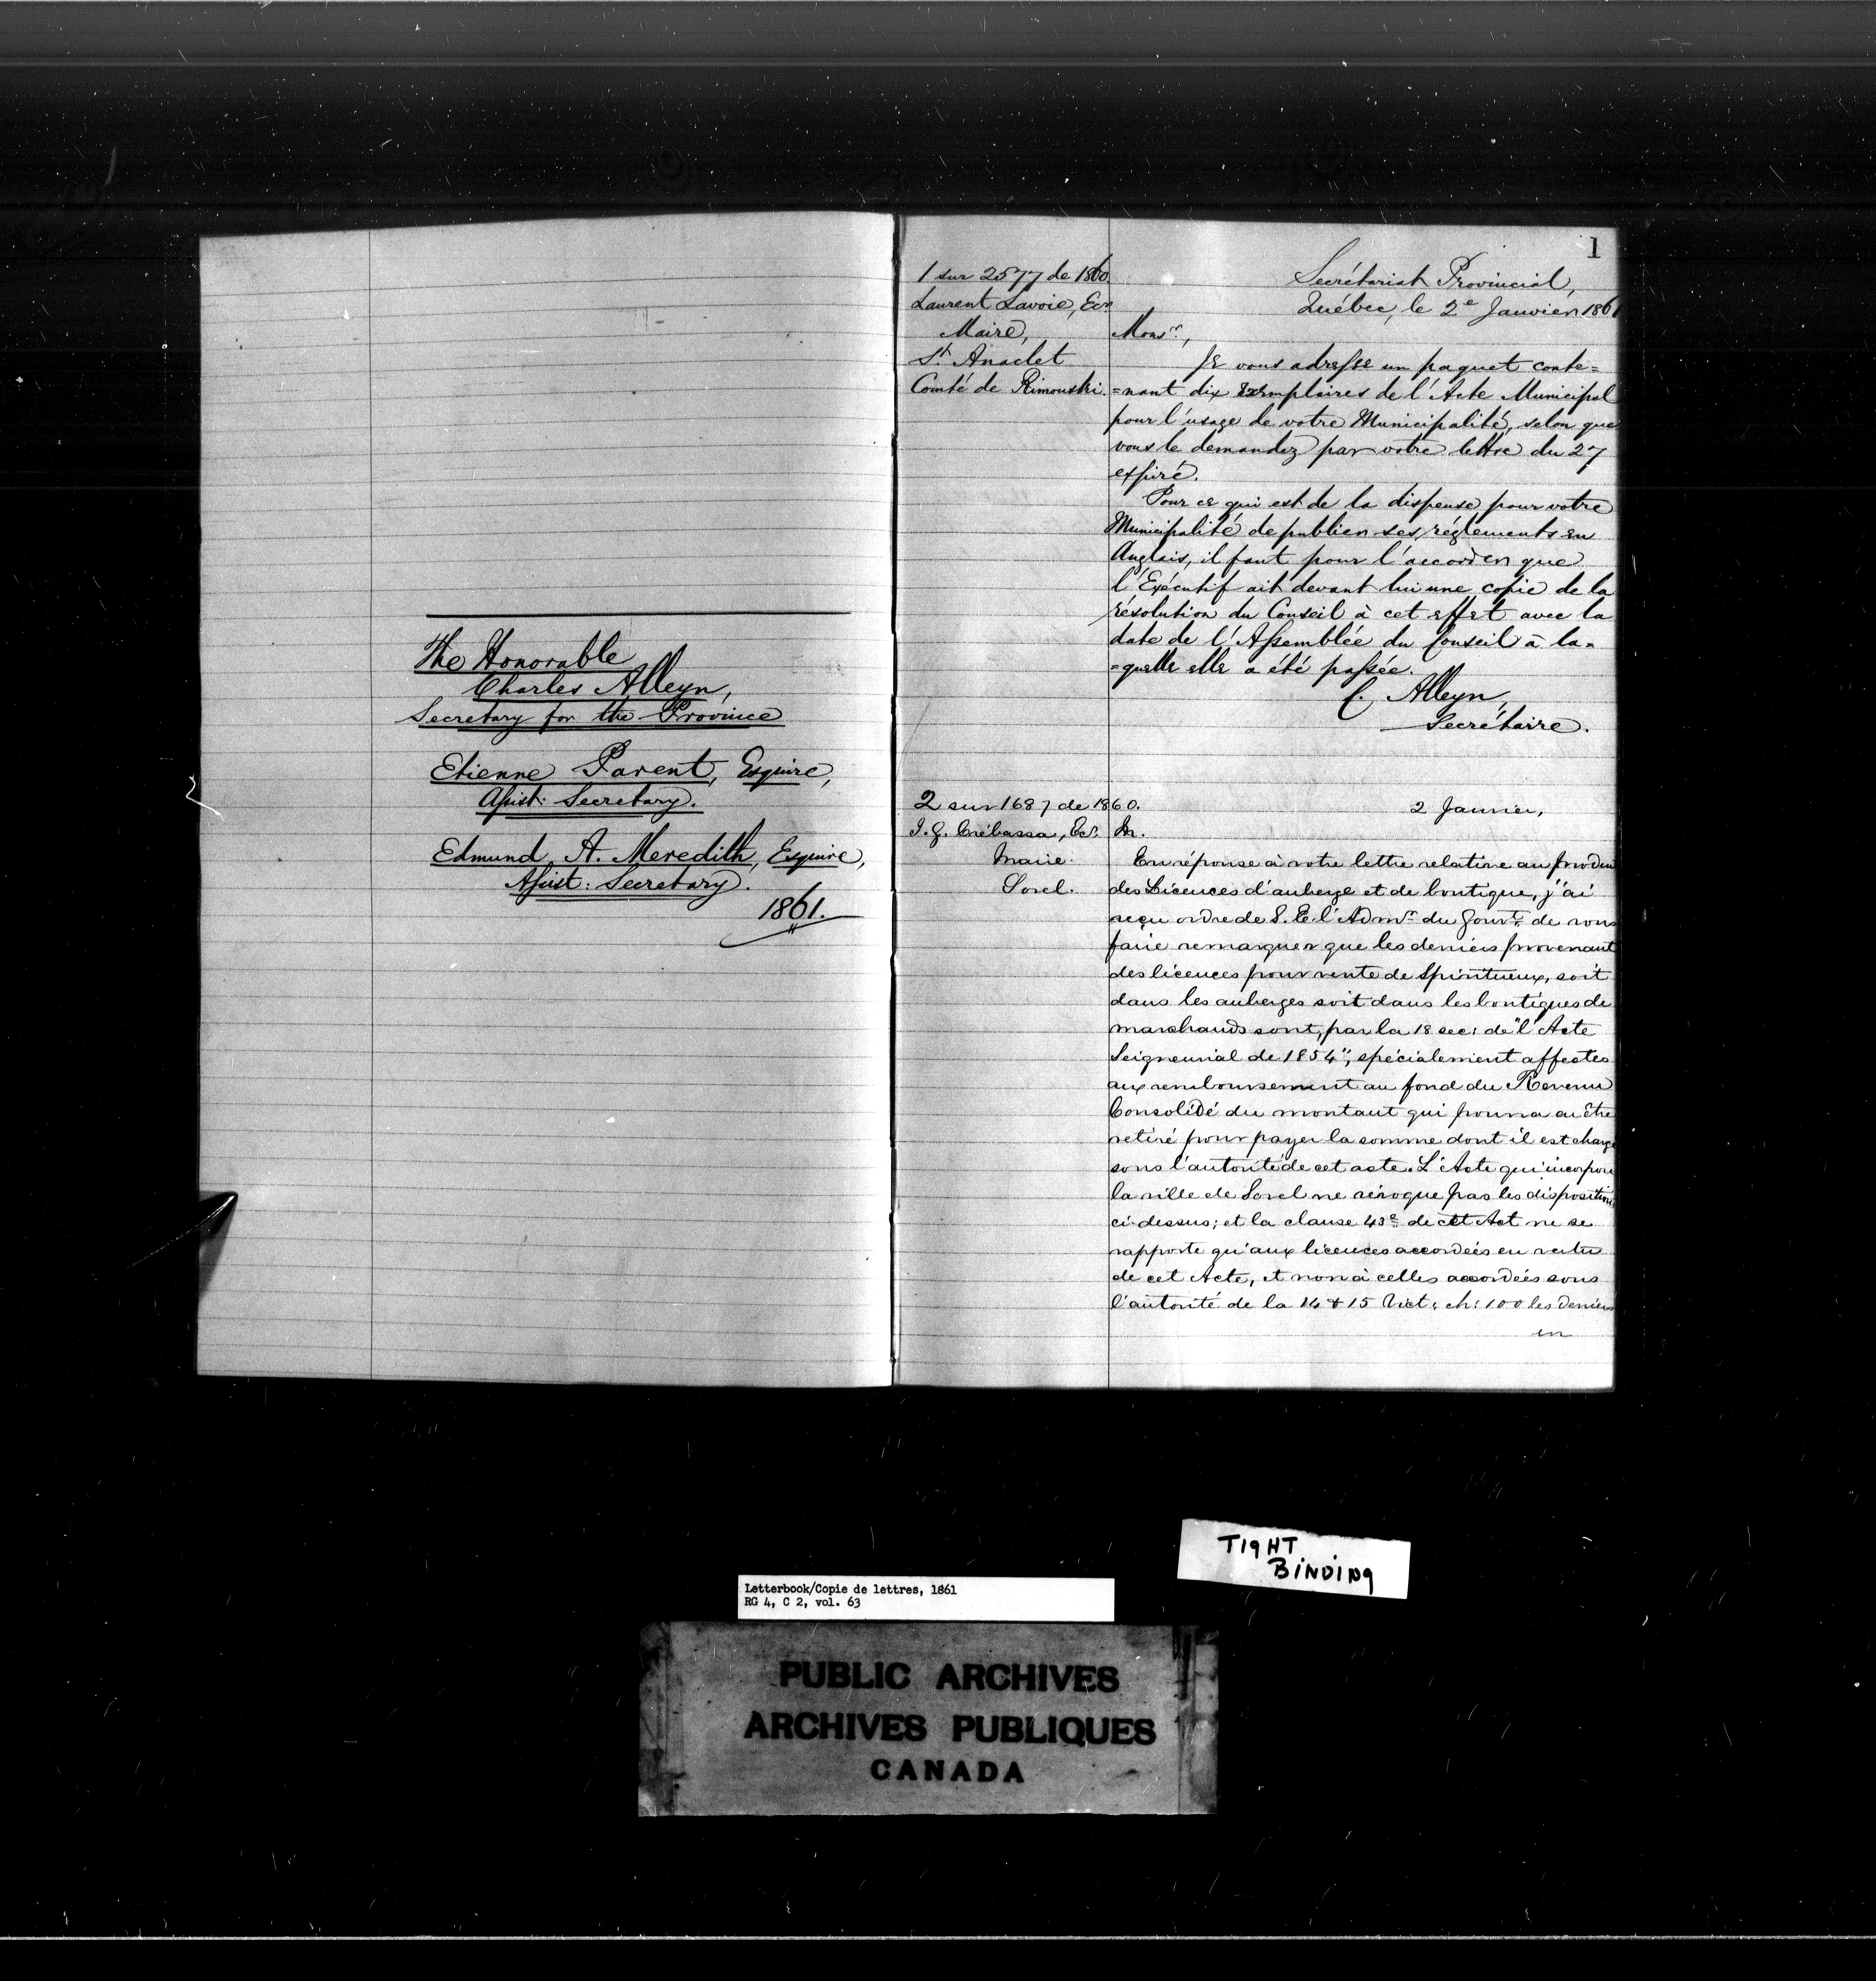 The Honorable
Charles Alleyn,
Secretary for the Province
Etienne Parent, Esquire,
Assist: Secretary.
Edmund A. Meredith, Esquire,
Assist: Secretary.
1861.
1
1 sur 2577 de 1860.
Laurent Lavoie, Ecr.
Maire,
St. Anaclet
Comté de Rimouski.
Secrétariat Provincial,
Québec, le 2e Janvier 1861
Monsr.,
Je vous adresse un paquet conte=
=nant dix exemplaires de l'Acte Municipal
pour l'usage de votre Municipalité, selon que
vous le demandez par votre lettre du 27
expiré.
Pour ce qui est de la dispense pour votre
Municipalité de publier ses réglements en
Anglais, il faut pour l'accorder que
l'Exécutif ait devant lui une copie de la
résolution du Conseil à cet effet avec la
date de l'Assemblée du Conseil à la=
=quelle elle a été passée.
C. Alleyn,
Secrétaire.
2 sur 1687 de 1860.
J. G. Crébassa, Ecr.
Maire.
Sorel.
2 Janvier,
M.
En réponse à votre lettre relative au produit
des Licences d'auberge et de boutique, j'ai
reçu ordre de S. E. l'Admr. du Gouvt. de vous
faire remarquer que les deniers provenant
des licences pour vente de Spiritueux, soit
dans les auberges soit dans les boutiques de
marchands sont, par la 18 sec: de "l'Acte
Seigneurial de 1854", spécialement affectés
aux remboursement au fond du Revenu
Consolidé du montant qui pourra en être
retiré pour payer la somme dont il est chargé
sous l'autorité de cet acte. L'Acte qui incorpore
la ville de Sorel ne révoque pas les dispositions
ci-dessus; et la clause 43e de cet Act ne se
rapporte qu'aux licences accordées en vertu
de cet Acte, et non à celles accordées sous
l'autorité de la 14 & 15 Vict: ch: 100 les deniers
en
TIGHT
BINDING
Letterbook/Copie de lettres, 1861
RG 4, C 2, vol. 63
PUBLIC ARCHIVES
ARCHIVES PUBLIQUES
CANADA